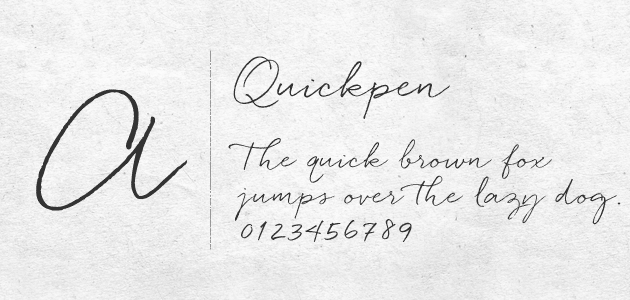 a
Quickpen
The quick brown fox
jumps over the lazy dog.
0123456789